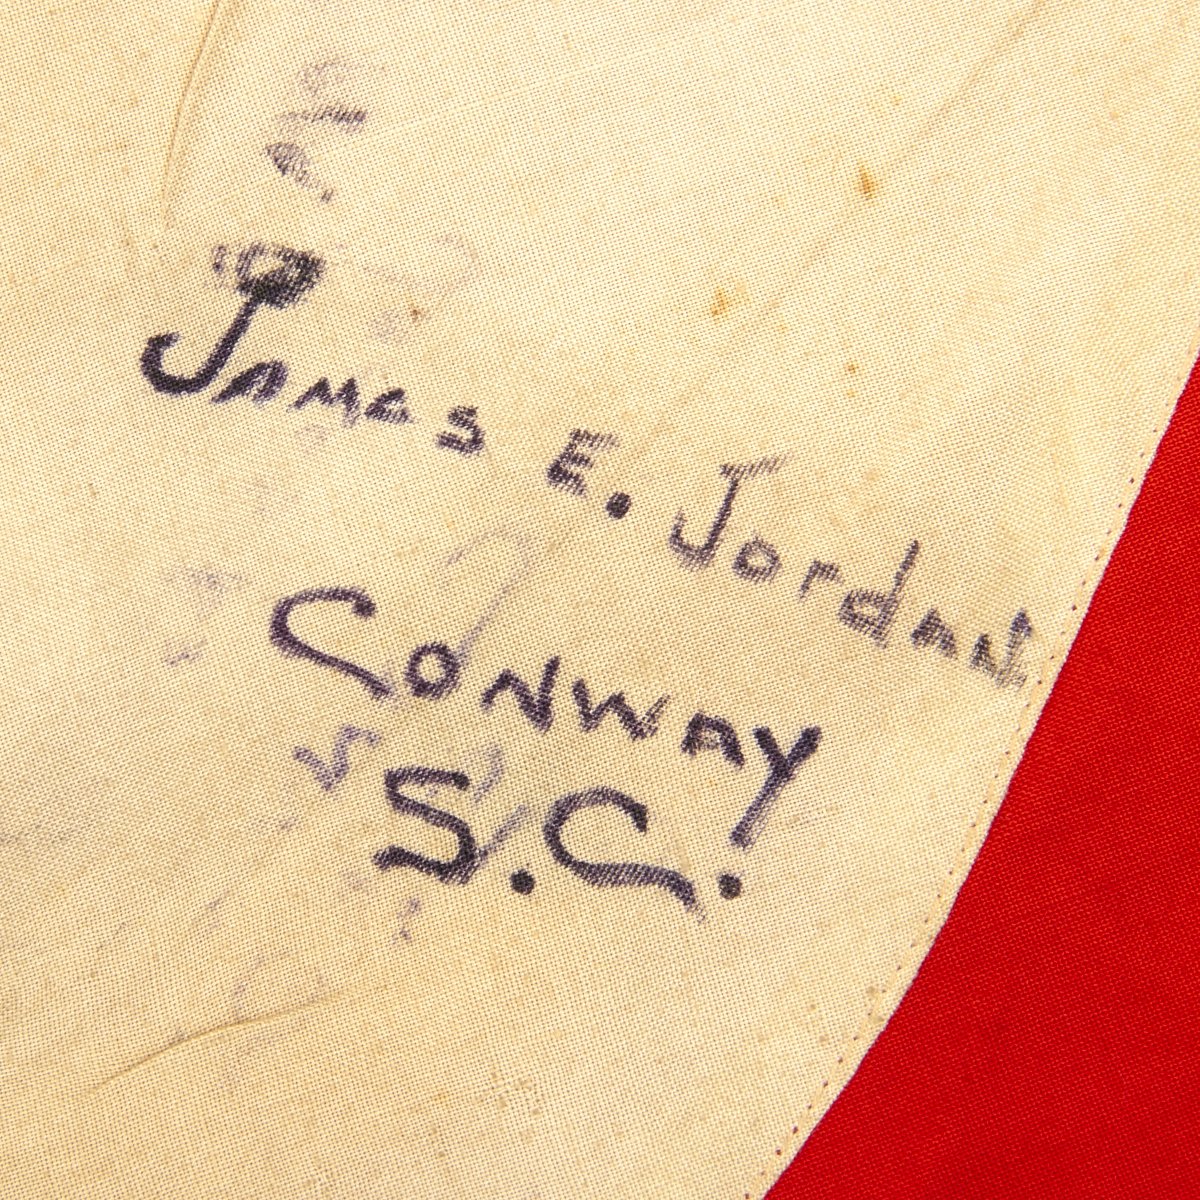 James E. Jordan
Conway
S.C.